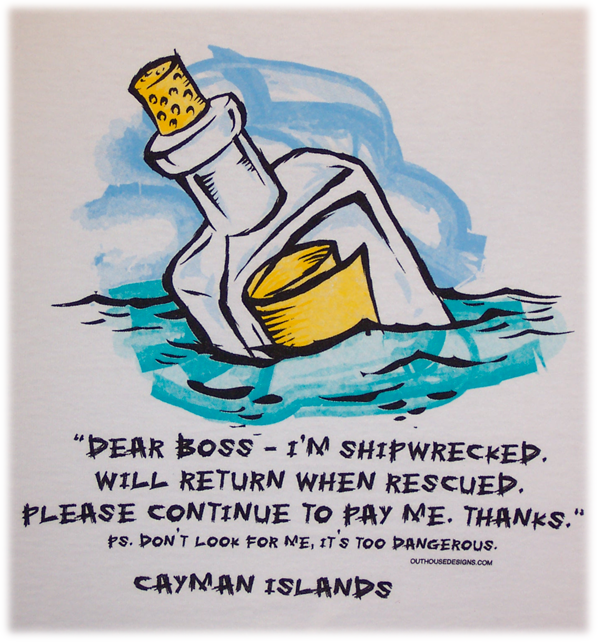 "DEAR BOSS - I'M SHIPWRECKED.
WILL RETURN WHEN RESCUED.
PLEASE CONTINUE TO PAY ME. THANKS."
PS. DON'T LOOK FOR ME, IT'S TOO DANGEROUS.
OUTHOUSEDESIGNS.COM
CAYMAN ISLANDS